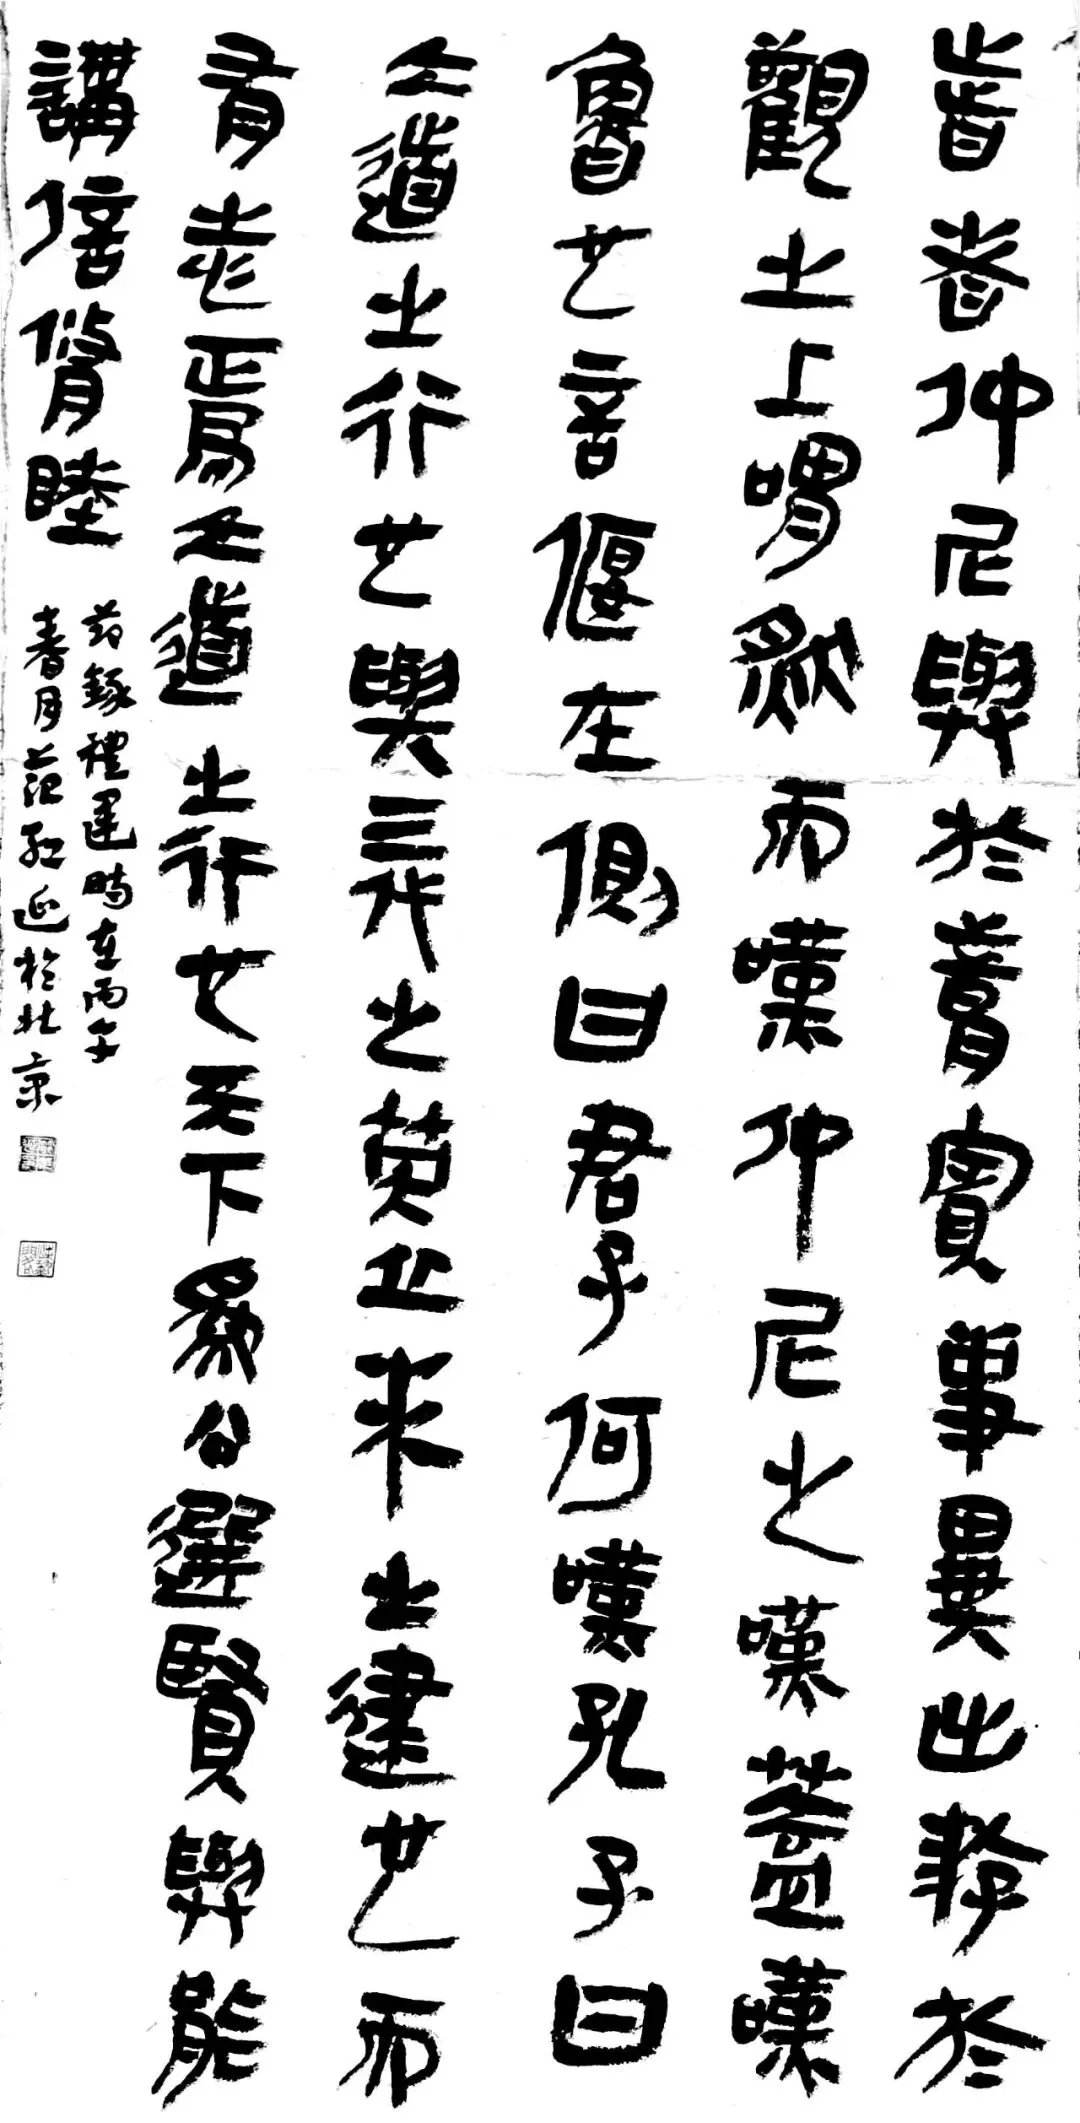 昔者仲尼與於蜡賓事畢出遊於
觀之上喟然而嘆仲尼之嘆蓋嘆
魯也言偃在側曰君子何嘆孔子曰
大道之行也與三代之英丘未之逮也而
有志焉大道之行也天下為公選賢與能
講信脩睦
節錄禮運時在丙午
春月范於北京